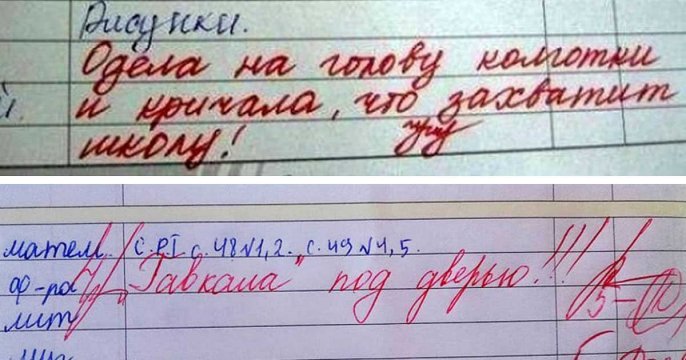 Рисунки.
Одела на голову колготки
и кричала, что захватит
школу!
матем. с. РТ с. 48 №1,2. с. 49 №4,5.
ф-ра „Гавкала" под дверью!!!
лит
5-